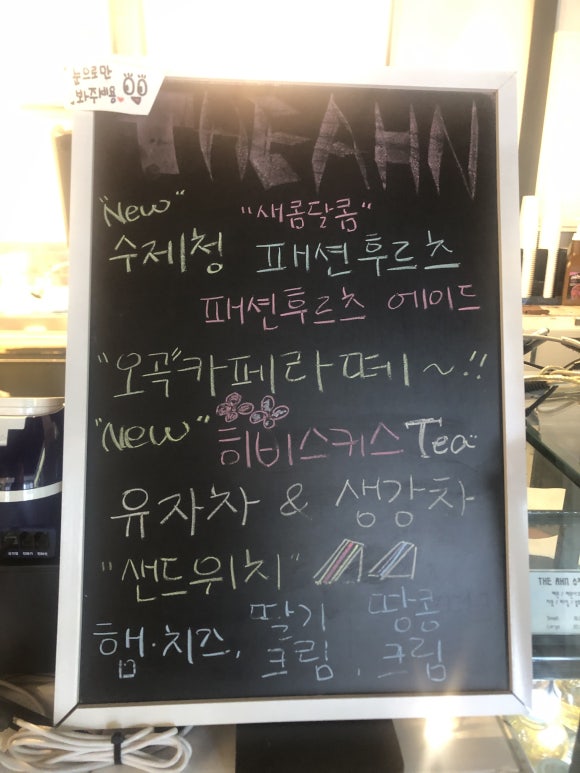 눈으로만
봐주세용
THE AHN
"New"
"새콤달콤"
수제청 패션후르츠
패션후르츠 에이드
"오곡"카페라떼~!!
"New"
히비스커스 Tea
유자차 & 생강차
"샌드위치"
햄·치즈, 딸기크림, 땅콩크림
THE AHN